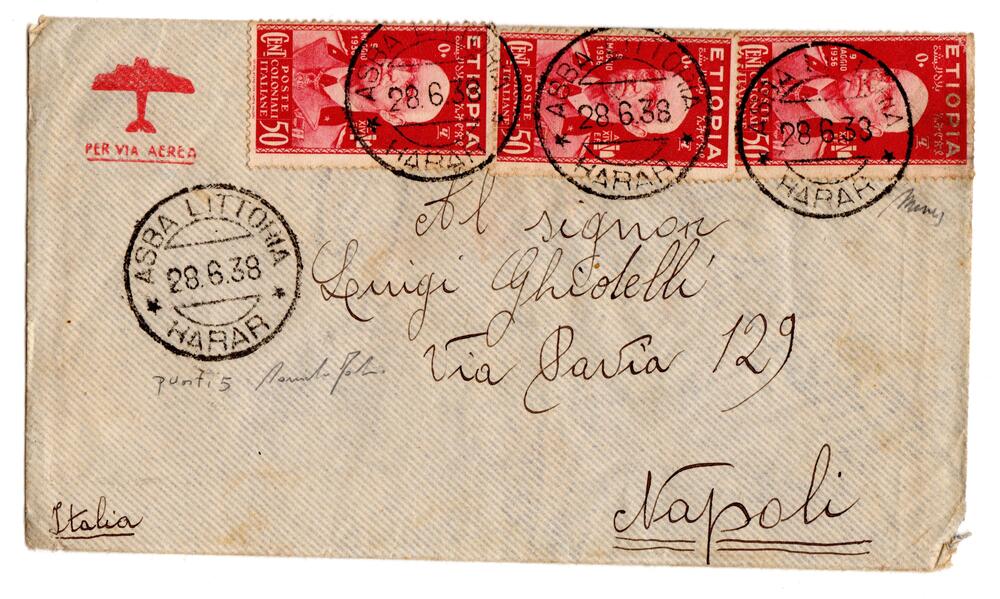 PER VIA AEREA
ETIOPIA
9 MAGGIO 1936
XIV E.F.
POSTE COLONIALI ITALIANE
CENT 50
ASBA LITTORIA
28.6.38
HARAR
ETIOPIA
9 MAGGIO 1936
POSTE COLONIALI ITALIANE
CENT 50
ASBA LITTORIA
28.6.38
HARAR
ETIOPIA
9 MAGGIO 1936
POSTE COLONIALI ITALIANE
CENT 50
ASBA LITTORIA
28.6.38
HARAR
ASBA LITTORIA
28.6.38
HARAR
Al signor
Luigi Ghidelli
Via Pavia 129
punti 5
Napoli
Italia